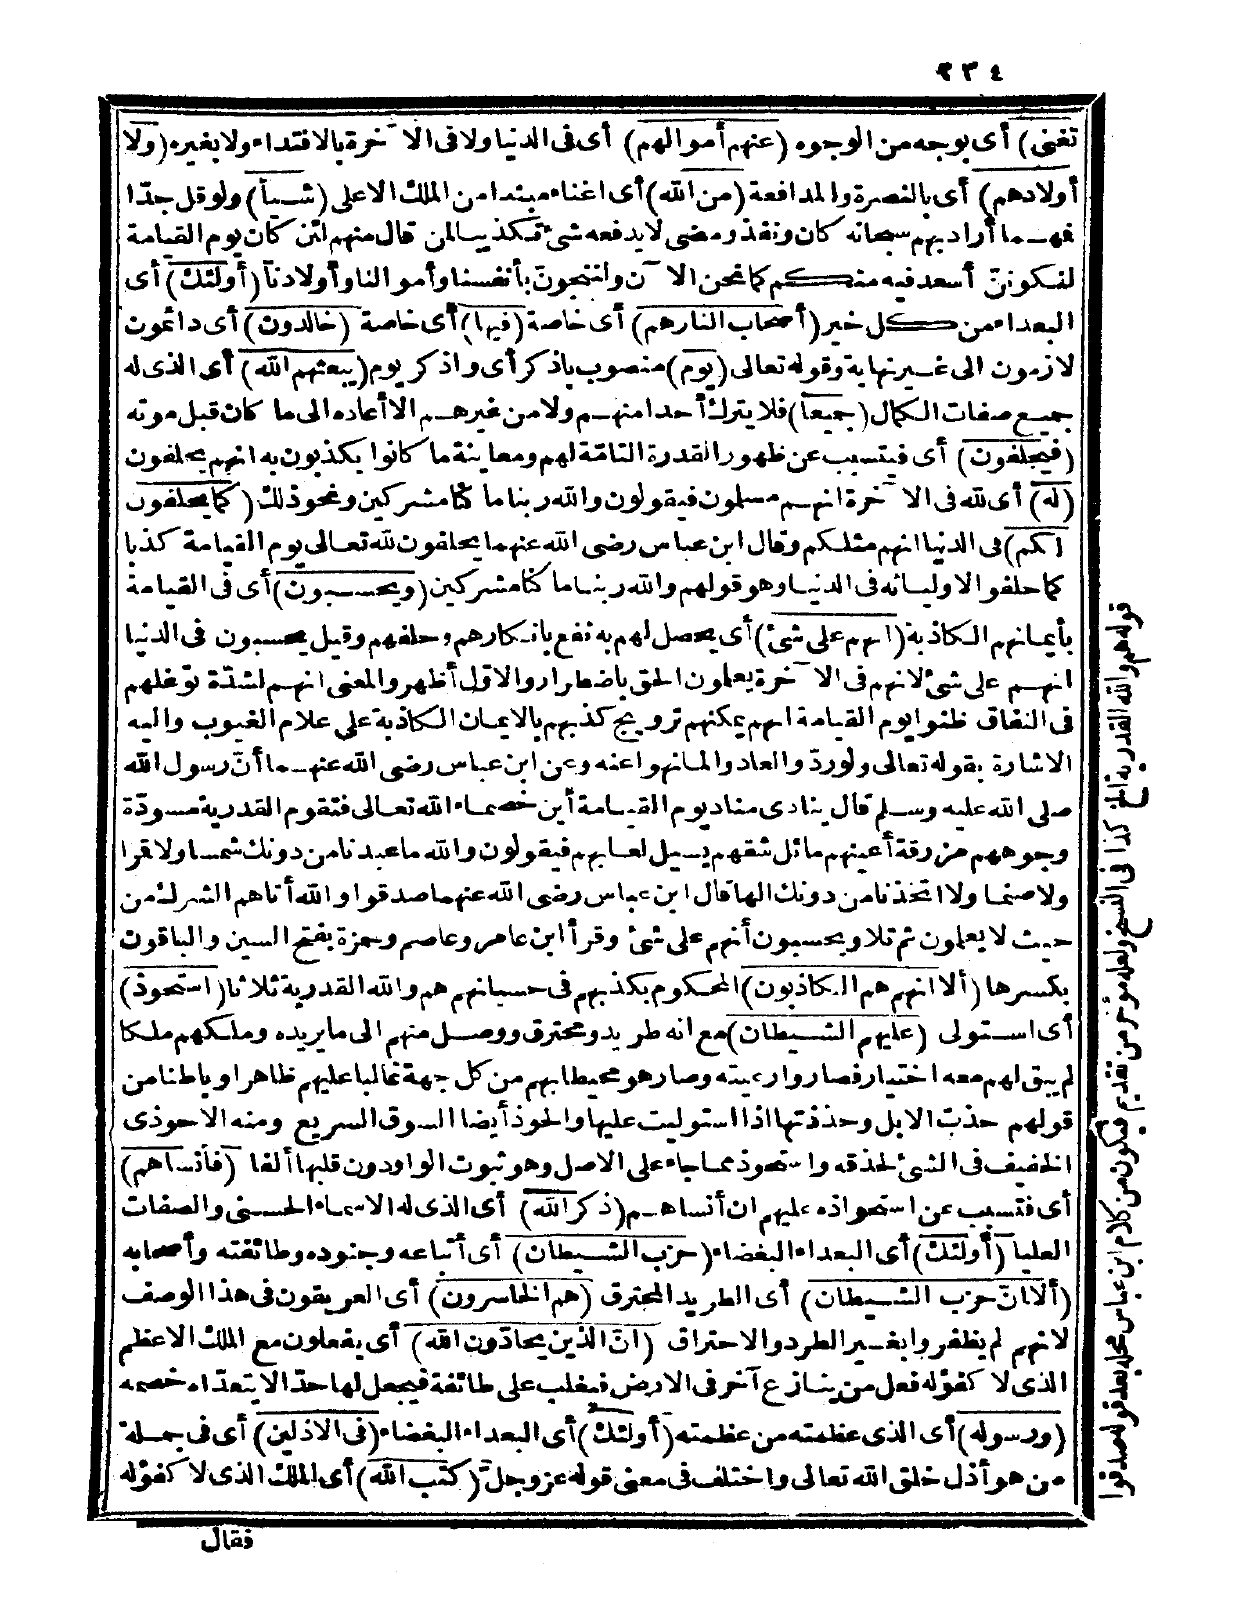 ٢٣٤
تغنى) أى بوجه من الوجوه (عنهم أموالهم) أى فى الدنيا ولا فى الآخرة بالافتداء ولا بغيره (ولا
أولادهم) أى بالنصرة والمدافعة (من الله) أى اغناء مبتدا من الملك الاعلى (شيأ) ولو قل جدّا
فهـما أراد بهم سبحانه كان ونفذ ومضى لا يدفعه شئ تكذيبا لمن قال منهم لئن كان يوم القيامة
لنكوننّ أسعد فيه منكم كما نحن الآن ولننجونّ بأنفسنا وأموالنا وأولادنا (أولئك) أى
البعداء من كل خير (أصحاب النارهم) أى خاصة (فيها) أى خاصة (خالدون) أى دائمون
لازمون الى غير نهاية وقوله تعالى (يوم) منصوب باذكر أى واذكر يوم (يبعثهم الله) أى الذى له
جميع صفات الكمال (جميعا) فلا يترك أحدا منهم ولا من غيرهم الا أعاده الى ما كان قبل موته
(فيحلفون) أى فيتسبب عن ظهور القدرة التامّة لهم ومعاينة ما كانوا يكذبون به انهم يحلفون
(له) أى لله فى الآخرة انهم مسلمون فيقولون والله ربنا ما كنا مشركين ونحو ذلك (كما يحلفون
لكم) فى الدنيا انهم مثلكم وقال ابن عباس رضى الله عنهما يحلفون لله تعالى يوم القيامة كذبا
كما حلفوا لاوليائه فى الدنيا وهو قولهم والله ربنا ما كنا مشركين (ويحسبون) أى فى القيامة
بأيمانهم الكاذبة (انهم على شئ) أى يحصل لهم به نفع بانكارهم وحلفهم وقيل يحسبون فى الدنيا
انهم على شئ لانهم فى الآخرة يعلمون الحق باضطرار والاوّل أظهر والمعنى انهم لشدّة توغلهم
فى النفاق ظنوا يوم القيامة انهم يمكنهم ترويج كذبهم بالايمان الكاذبة على علام الغيوب واليه
الاشارة بقوله تعالى ولو ردّوا لعادوا لما نهوا عنه وعن ابن عباس رضى الله عنهـما أنّ رسول الله
صلى الله عليه وسلم قال ينادى مناد يوم القيامة أين خصماء الله تعالى فتقوم القدرية مسودّة
وجوههم مزرقة أعينهم مائل شقهم يسيل لعابهم فيقولون والله ما عبدنا من دونك شمسا ولا قمرا
ولا صنما ولا اتخذنا من دونك الها قال ابن عباس رضى الله عنهما صدقوا والله أتاهم الشرك من
حيث لا يعلمون ثم تلا ويحسبون أنهم على شئ وقرأ ابن عامر وعاصم وحمزة بفتح السين والباقون
بكسرها (ألا انهم هم الكاذبون) المحكوم بكذبهم فى حسبانهم هم والله القدرية ثلاثا (استحوذ)
أى استولى (عليهم الشيطان) مع انه طريد ومحترق ووصل منهم الى ما يريده وملكهم ملكا
لم يبق لهم معه اختيار فصاروا رعيته وصار هو محيطا بهم من كل جهة غالبا عليهم ظاهرا وباطنا من
قولهم حذت الابل وحذذتها اذا استوليت عليها والحوذ أيضا السوق السريع ومنه الاحوذى
الخفيف فى الشئ لحذقه واستحوذ مما جاء على الاصل وهو ثبوت الواو دون قلبها ألفا (فأنساهم)
أى فتسبب عن استحواذه عليهم ان أنساهم (ذكر الله) أى الذى له الاسماء الحسنى والصفات
العليا (أولئك) أى البعداء البغضاء (حزب الشيطان) أى أتباعه وجنوده وطائفته وأصحابه
(ألا انّ حزب الشيطان) أى الطريد المحترق (هم الخاسرون) أى العريقون فى هذا الوصف
لانهم لم يظفروا بغير الطرد والاحتراق (انّ الذين يحادّون الله) أى يفعلون مع الملك الاعظم
الذى لا كفؤ له فعل من ينازع آخر فى الارض فيغلب على طائفة فيجعل لها حدّا لا يتعدّاه خصمه
(ورسوله) أى الذى عظمته من عظمته (أولئك) أى البعداء البغضاء (فى الاذلين) أى فى جملة
من هو أذل خلق الله تعالى واختلف فى معنى قوله عز وجل (كتب الله) أى الملك الذى لا كفؤ له
فقال
قوله هم والله القدرية الخ كذا فى النسخ ولعله مؤخر من تقديم فيكون من كلام ابن عباس محله بعد قوله صدقوا